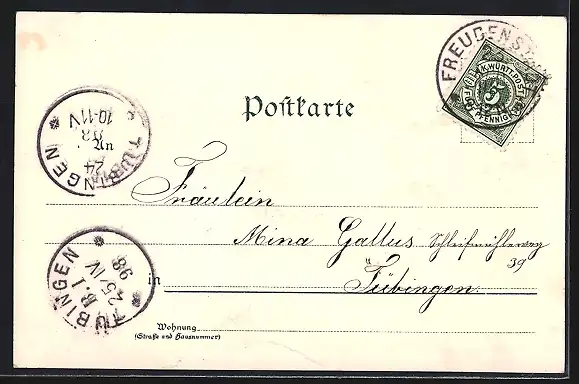 FREUDENST
K.WÜRTT.POST
5
FÜNF PFENNIG
Postkarte
TÜBINGEN
24
98
10-11V
An
Fräulein
Mina Gallus Schleifmühleweg
39
in Tübingen.
TÜBINGEN
B.1
25/IV
98
Wohnung
(Straße und Hausnummer)